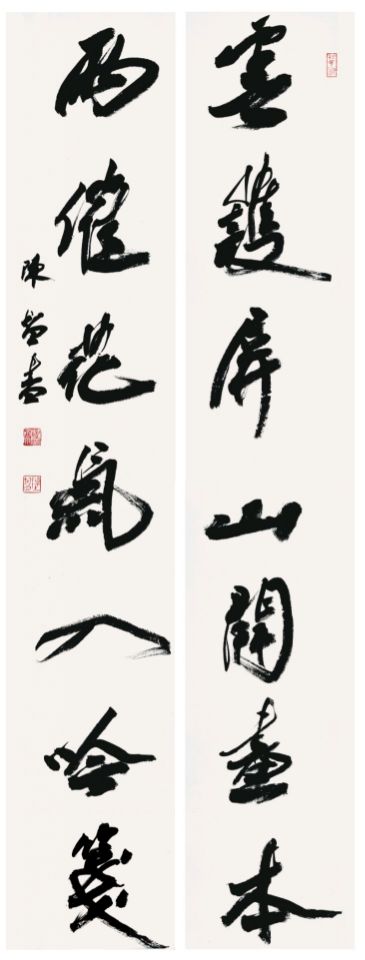 雲護屏山開畫本
雨催花氣入吟箋
陳書